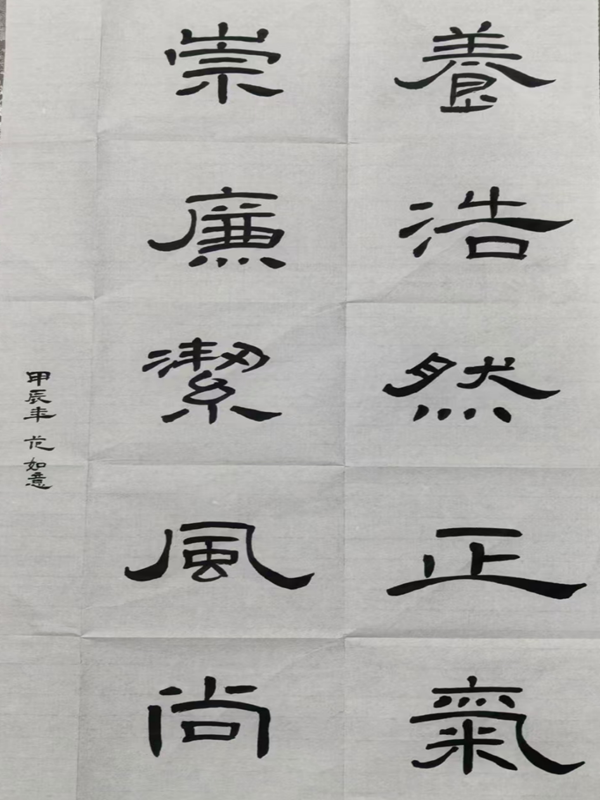 養浩然正氣
崇廉潔風尚
甲辰年范如意